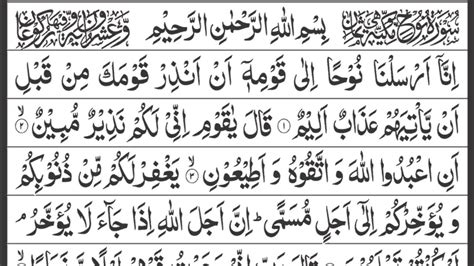 سورة نوح مكية وهي ثمان وعشرون اية وفيها ركوعان
بِسْمِ اللهِ الرَّحْمٰنِ الرَّحِيْمِ
اِنَّاۤ اَرْسَلْنَا نُوْحًا اِلٰى قَوْمِهٖۤ اَنْ اَنْذِرْ قَوْمَكَ مِنْ قَبْلِ
اَنْ يَّاْتِيَهُمْ عَذَابٌ اَلِيْمٌ ۝١ قَالَ يٰقَوْمِ اِنِّىْ لَكُمْ نَذِيْرٌ مُّبِيْنٌ ۝٢ۙ
اَنِ اعْبُدُوا اللهَ وَ اتَّقُوْهُ وَ اَطِيْعُوْنِ ۝٣ۙ يَغْفِرْ لَكُمْ مِّنْ ذُنُوْبِكُمْ
وَ يُؤَخِّرْكُمْ اِلٰۤى اَجَلٍ مُّسَمًّى ؕ اِنَّ اَجَلَ اللهِ اِذَا جَآءَ لَا يُؤَخَّرُ ۘ